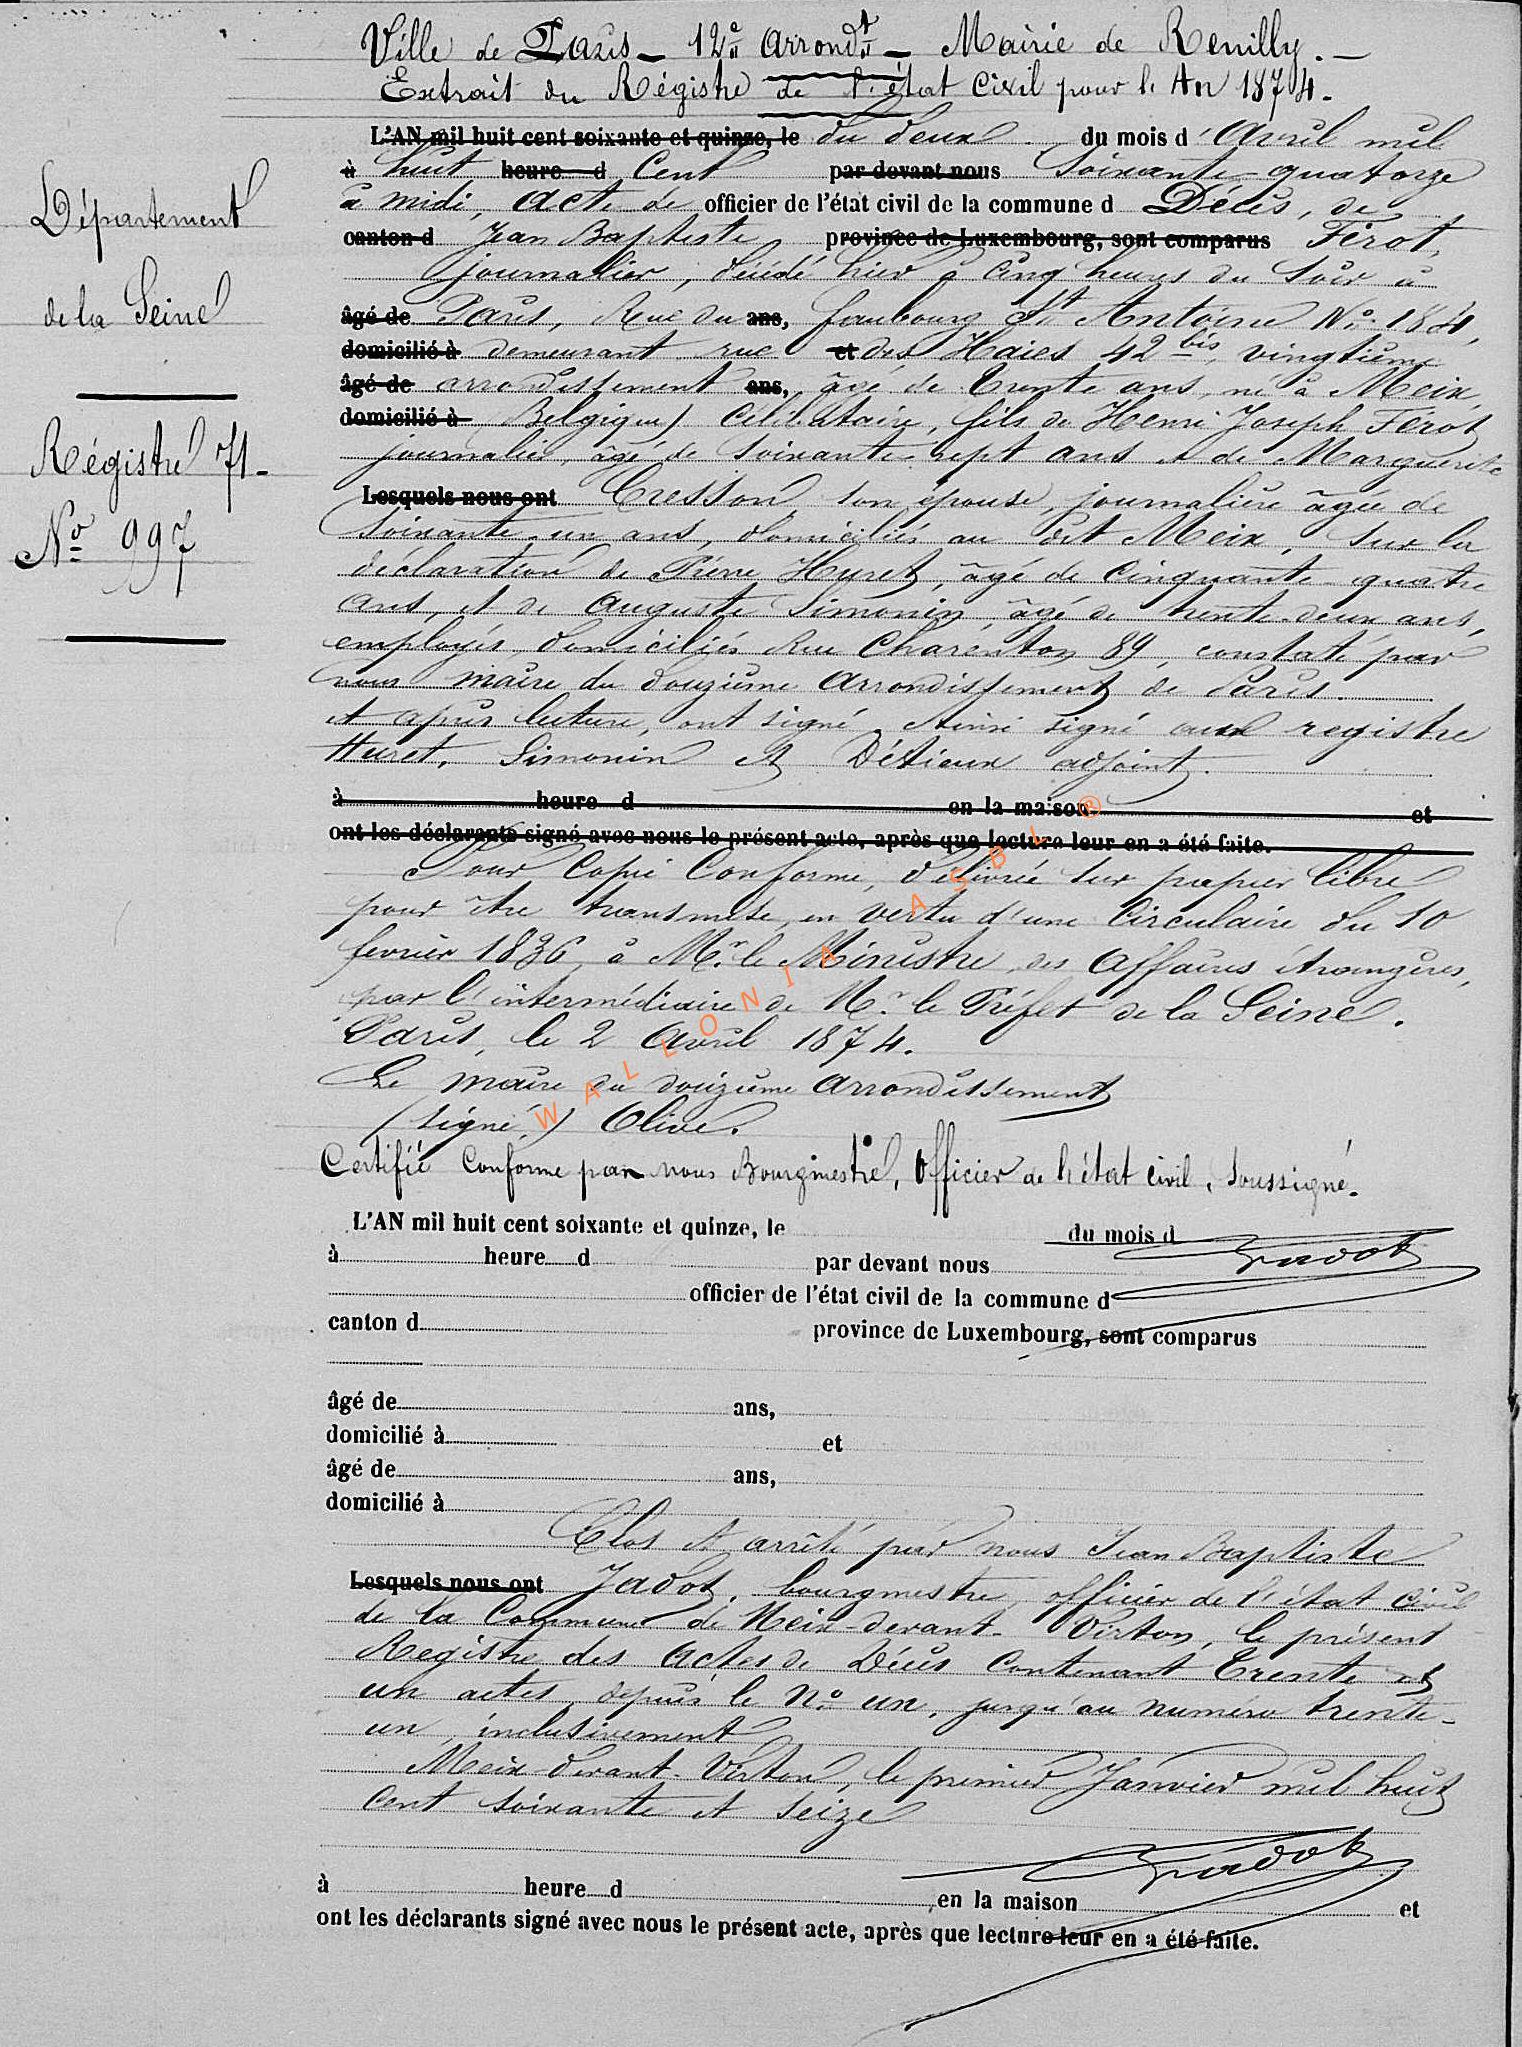 Ville de Paris - 12e arrondt - Mairie de Reuilly. -
Extrait du Régistre de l'état Civil pour l'An 1874.
L'AN mil huit cent soixante et quinze, le du deux du mois d'Avril mil
à huit heure d Cent par devant nous Soixante-quatorze
à midi, Acte de officier de l'état civil de la commune d Décès, de
canton d Jean Baptiste province de Luxembourg, sont comparus Férot,
journalier, décédé hier à Cinq heures du Soir à
âgé de Paris, Rue du ans, faubourg St Antoine No. 184,
domicilié à demeurant rue et des Haies 42 bis, vingtième
âgé de arrondissement ans, âgé de trente ans, né à Meix,
domicilié à (Belgique) Célibataire, fils de Henri Joseph Férot
journalier, âgé de Soixante-sept ans et de Marguerite
Lesquels nous ont Cresson, son épouse, journalière âgée de
Soixante-un ans, domiciliés au dit Meix, Sur la
déclaration de Pierre Huret, âgé de Cinquante-quatre
ans, et de Auguste Simonin, âgé de trente-deux ans,
employés, domiciliés Rue Charenton 89, constaté par
nous maire du douzième Arrondissement de Paris.
et après lecture, ont signé. Ainsi signé aux registre
Huret, Simonin et adjoint.
à heure d en la maison et
ont les déclarants signé avec nous le présent acte, après que lecture leur en a été faite.
Pour Copie Conforme, délivrée sur papier libre
pour être transmise, en vertu d'une Circulaire du 10
février 1836, à Mr. le Ministre des Affaires étrangères,
par l'intermédiaire de Mr. le Préfet de la Seine.
Paris, le 2 Avril 1874.
Le maire du douzième Arrondissement
(signé,) Olive.
Certifié Conforme par nous Bourgmestre, Officier de l'état Civil, Soussigné.
L'AN mil huit cent soixante et quinze, le du mois d
Jadot
à heure d par devant nous
officier de l'état civil de la commune d
canton d province de Luxembourg, sont comparus
âgé de ans,
domicilié à et
âgé de ans,
domicilié à
Clos et arrêté par nous Jean Baptiste
Lesquels nous ont Jadot, bourgmestre, officier de l'état Civil
de la Commune de Meix-devant-Virton, le présent
Registre des Actes de Décès Contenant Trente et
un actes, depuis le No. un, jusqu'au numéro trente-
un inclusivement
Meix-devant-Virton, le premier Janvier mil huit
Cent soixante et seize
Jadot
à heure d en la maison et
ont les déclarants signé avec nous le présent acte, après que lecture leur en a été faite.
Département
de la Seine
Régistre 71-
No 997
WALLONIA ASBL ®